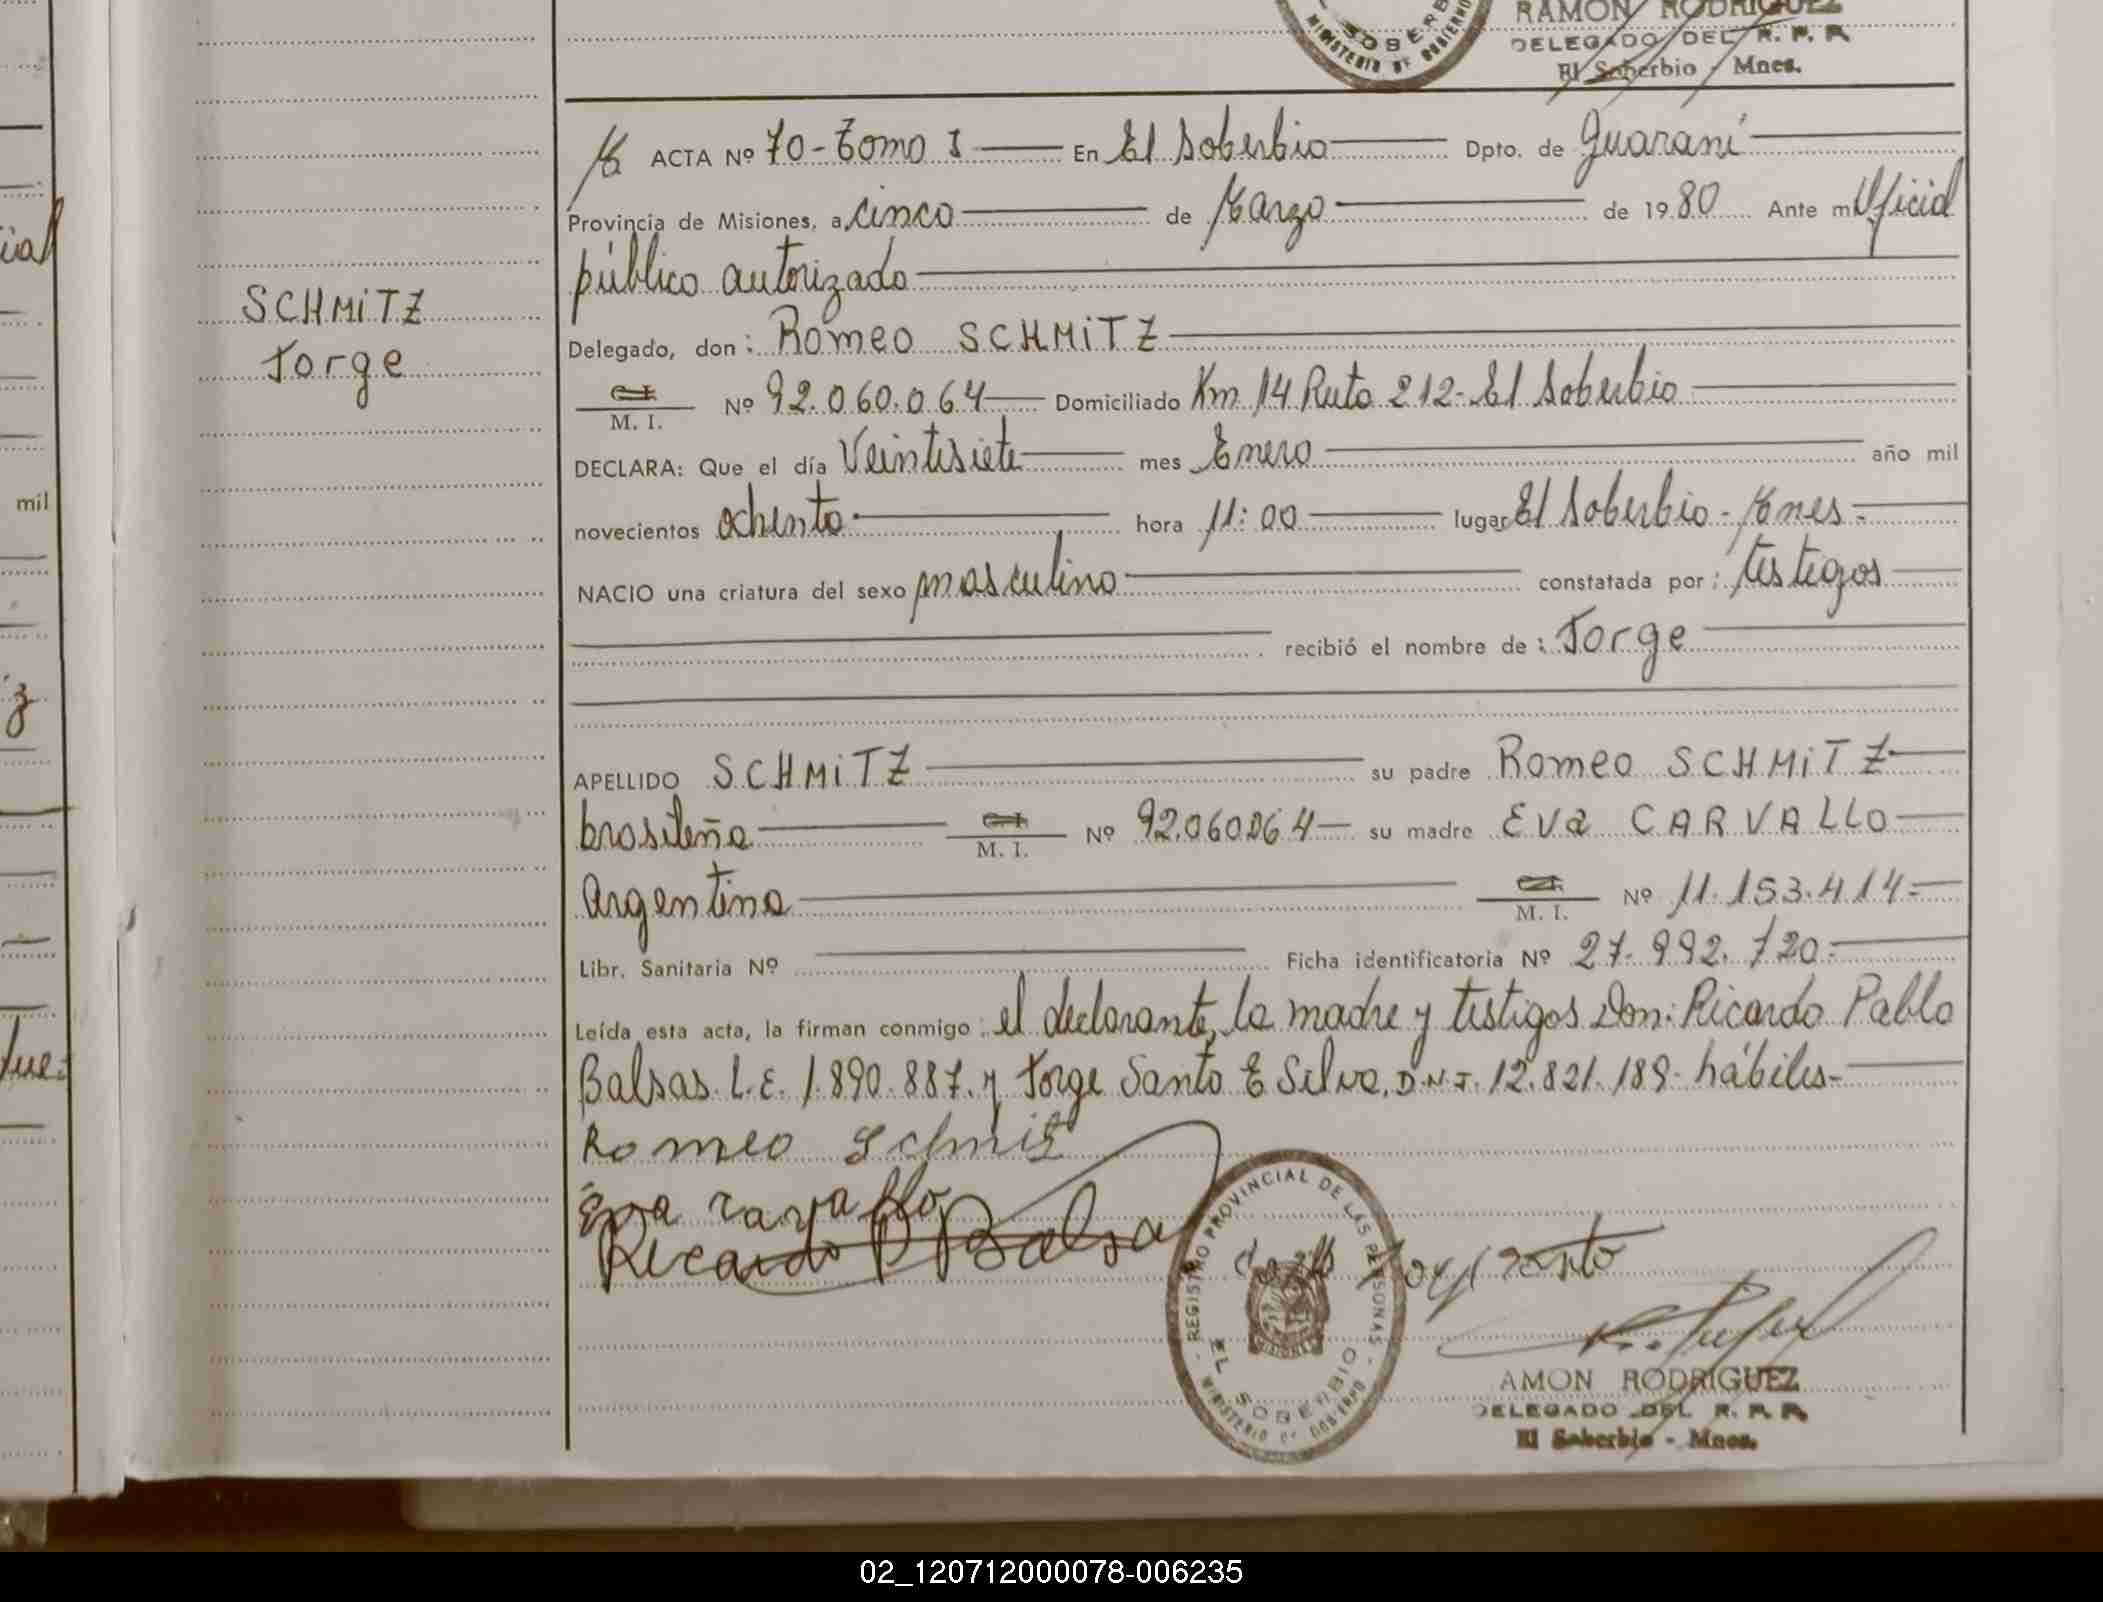 RAMON RODRIGUEZ
DELEGADO DEL R. P. P.
El Soberbio - Mnes.
SCHMiTZ
Jorge
ACTA Nº 70-Tomo I En El Soberbio Dpto. de Guaraní
Provincia de Misiones, a cinco de Marzo de 1980 Ante mí Oficial
público autorizado
Delegado, don: Romeo SCHMiTZ
M. I. Nº 92.060.064 Domiciliado Km 14 Ruta 212-El Soberbio
DECLARA: Que el día Veintisiete mes Enero año mil
novecientos ochenta hora 11:00 lugar El Soberbio-Mnes-
NACIO una criatura del sexo masculino constatada por: testigos
recibió el nombre de: Jorge
APELLIDO SCHMiTZ su padre Romeo SCHMiTZ
brasileña M. I. Nº 92.060.064 su madre Eva CARVALLO
Argentina M. I. Nº 11.153.414-
Libr. Sanitaria Nº Ficha identificatoria Nº 27.992.720-
Leída esta acta, la firman conmigo: el declarante, la madre y testigos Don: Ricardo Pablo
Balsas L.E. 1.890.887. y Jorge Santo E Silva, D.N.I. 12.821.189- hábiles-
Romeo Schmitz
Eva
Ricardo P Balsa
REGISTRO PROVINCIAL DE LAS PERSONAS
EL SOBERBIO
MINISTERIO DE GOBIERNO
AMON RODRIGUEZ
DELEGADO DEL R. P. P.
El Soberbio - Mnes.
mil
02_120712000078-006235